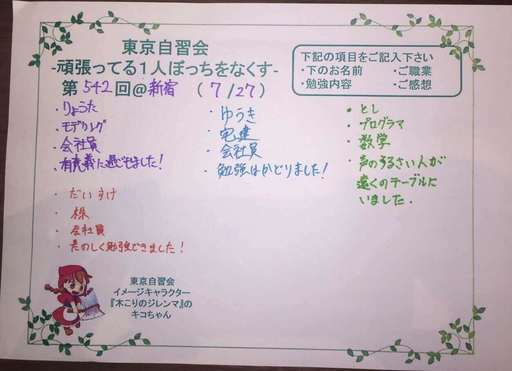 東京自習会
-頑張ってる１人ぼっちをなくす-
第542回@新宿 (7/27)
下記の項目をご記入下さい
・下のお名前 ・ご職業
・勉強内容 ・ご感想
・りょうた
・モデリング
・会社員
・有意義に過ごせました!
・ゆうき
・宅建
・会社員
・勉強はかどりました!
・とし
・プログラマ
・数学
・声のうるさい人が
遠くのテーブルに
いました.
・だいすけ
・株
・会社員
・たのしく勉強できました!
東京自習会
イメージキャラクター
『木こりのジレンマ』の
キコちゃん